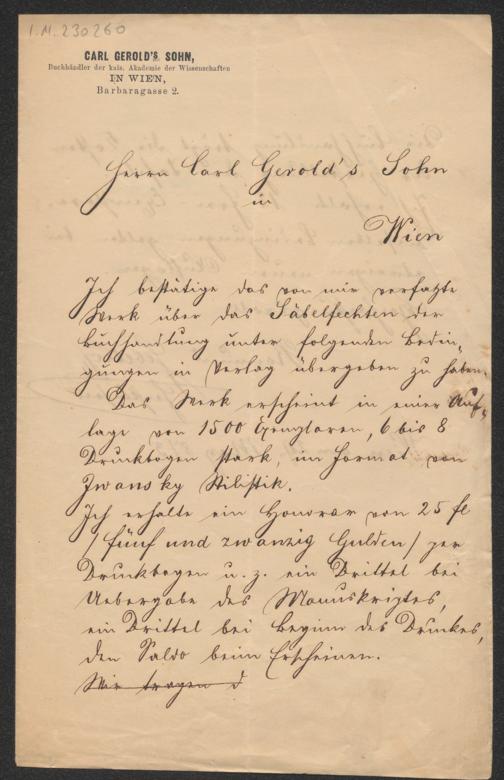 I.N. 230260
CARL GEROLD'S SOHN,
Buchhändler der kais. Akademie der Wissenschaften
IN WIEN,
Barbaragasse 2.
Herrn Carl Gerold's Sohn
in
Wien
Ich bestätige das von mir verfaßte
Werk über das Säbelfechten der
Buchhandlung unter folgenden Bedin-
gungen in Verlag übergeben zu haben.
Das Werk erscheint in einer Auf-
lage von 1500 Exemplaren, 6 bis 8
Druckbogen stark, im Format von
Zwansky Stilistik.
Ich erhalte ein Honorar von 25 fl
/fünf und zwanzig Gulden/ per
Druckbogen u. z. ein Drittel bei
Uebergabe des Manuskriptes,
ein Drittel bei Beginn des Druckes,
den Saldo beim Erscheinen.
Wir tragen d